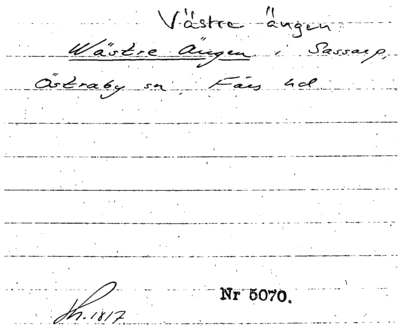 Västre ängen
Wästre Ängen i Sassarp,
Östraby sn, Färs hd
Nr 5070.
h. 1817